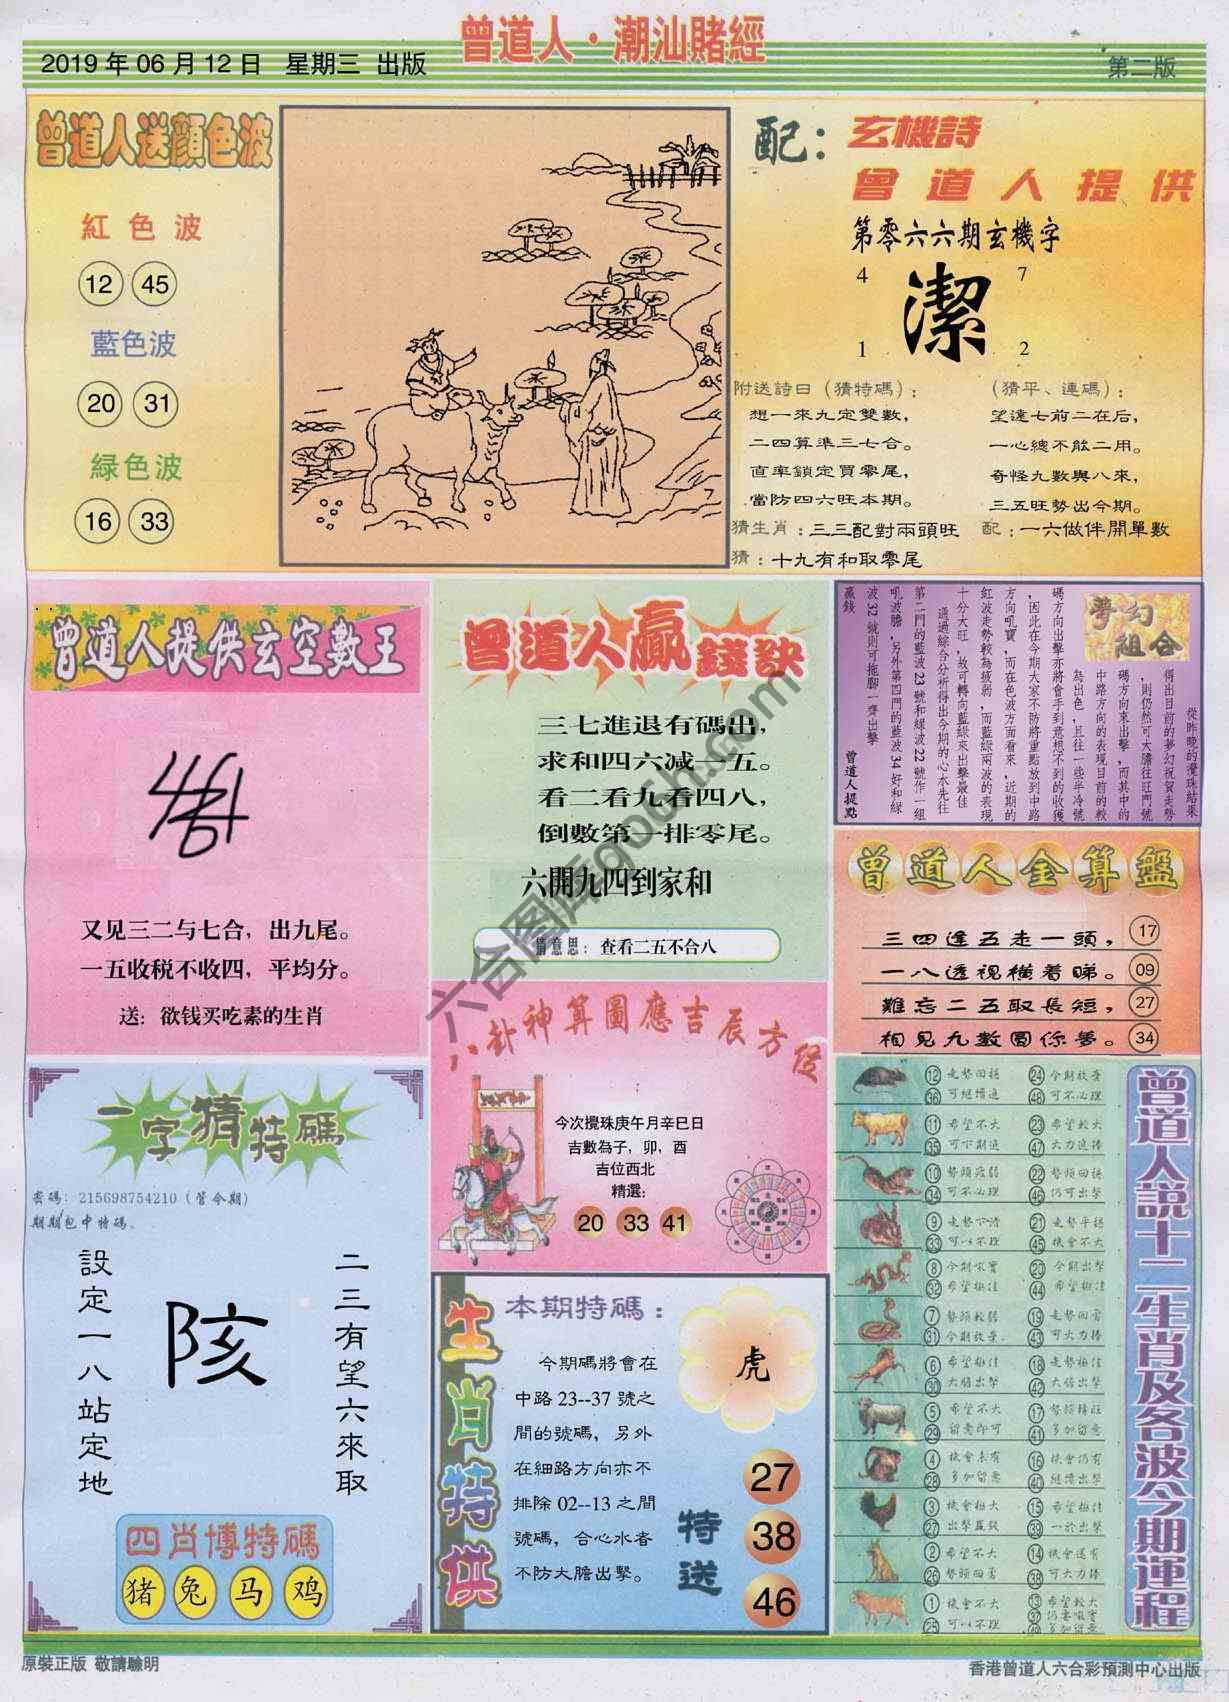 2019年06月12日 星期三 出版
曾道人·潮汕賭經
第二版
曾道人送顔色波
紅色波
12 45
藍色波
20 31
緑色波
16 33
配:
玄機詩
曾道人提供
第零六六期玄機字
4 7
潔
1 2
附送詩曰（猜特碼）:
想一來九定雙數，
二四算準三七合。
直率鎖定買零尾，
當防四六旺本期。
（猜平、連碼）:
望遠七前二在后，
一心總不能二用。
奇怪九數與八來，
三五旺勢出今期。
猜生肖:三三配對兩頭旺 配:一六做伴開單數
猜:十九有和取零尾
曾道人提供玄空數王
又见三二与七合，出九尾。
一五收税不收四，平均分。
送：欲钱买吃素的生肖
曾道人贏錢訣
三七進退有碼出，
求和四六减一五。
看二看九看四八，
倒數第一排零尾。
六開九四到家和
猜意思：查看二五不合八
夢幻組合
從昨晚的攪珠結果
得出目前的夢幻祝賀走勢
，則仍然可大膽往旺門號
碼方向來出擊，而其中的
中路方向的表現目前的較
為出色，且往一些半冷號
碼方向出擊亦將會手到意想不到的收獲
，因此在今期大家不防將重點放到中路
方向吼寶，而在色波方面看來，近期的
紅波走勢較為疲弱，而藍緑兩波的表現
十分大旺，故可轉向藍緑來出擊最佳
通過綜合分析得出今期的心水先往
第二門的藍波23號和緑波22號作一組
吼波膽，另外第四門的藍波34好和緑
波32號則可拖腳一齊出擊
贏錢
曾道人提點
曾道人金算盤
三四逢五走一頭， 17
一八透視橫着睇。 09
難忘二五取長短， 27
相見九數圓你夢。 34
八卦神算圖應吉辰方位
今次攪珠庚午月辛巳日
吉數為子，卯，酉
吉位西北
精選:
20 33 41
一字猜特碼
密碼: 215698754210（管今期）
期期包中特碼。
二三有望六來取
陔
設定一八站定地
四肖博特碼
猪 兔 马 鸡
生肖特供
本期特碼:
今期碼將會在
中路23--37號之
間的號碼，另外
在細路方向亦不
排除02--13之間
號碼，合心水者
不防大膽出擊。
虎
特送
27
38
46
曾道人說十二生肖及各波今期運程
12 走勢回穩 24 今期收爷
36 可繼增進 48 可不必理
11 希望不大 23 希望較大
35 可下期追 47 大力追捧
10 勢頭疲弱 22 勢頭回穩
34 可不必理 46 仍可出擊
9 走勢下滑 21 走勢平穩
33 可以不理 45 機會不大
8 今期吸寶 20 今期出擊
32 希望極佳 44 希望極佳
7 勢頭較弱 19 走勢回勇
31 今期收爷 43 可大力捧
6 希望極佳 18 走勢極佳
30 大膽出擊 42 大膽出擊
5 希望不大 17 勢頭轉旺
29 留意即可 41 多加留意
4 機會未有 16 機會仍有
28 多加留意 40 繼續出擊
3 機會極大 15 希望極佳
27 出擊贏錢 39 一於出擊
2 希望不大 14 機會還有
26 勢頭回勇 38 可大力捧
1 機會不大 13 希望較大
25 可以不理 37 仍需吸寶
49 多加留意
原裝正版 敬請驗明
香港曾道人六合彩預測中心出版
六合图库gocht.com